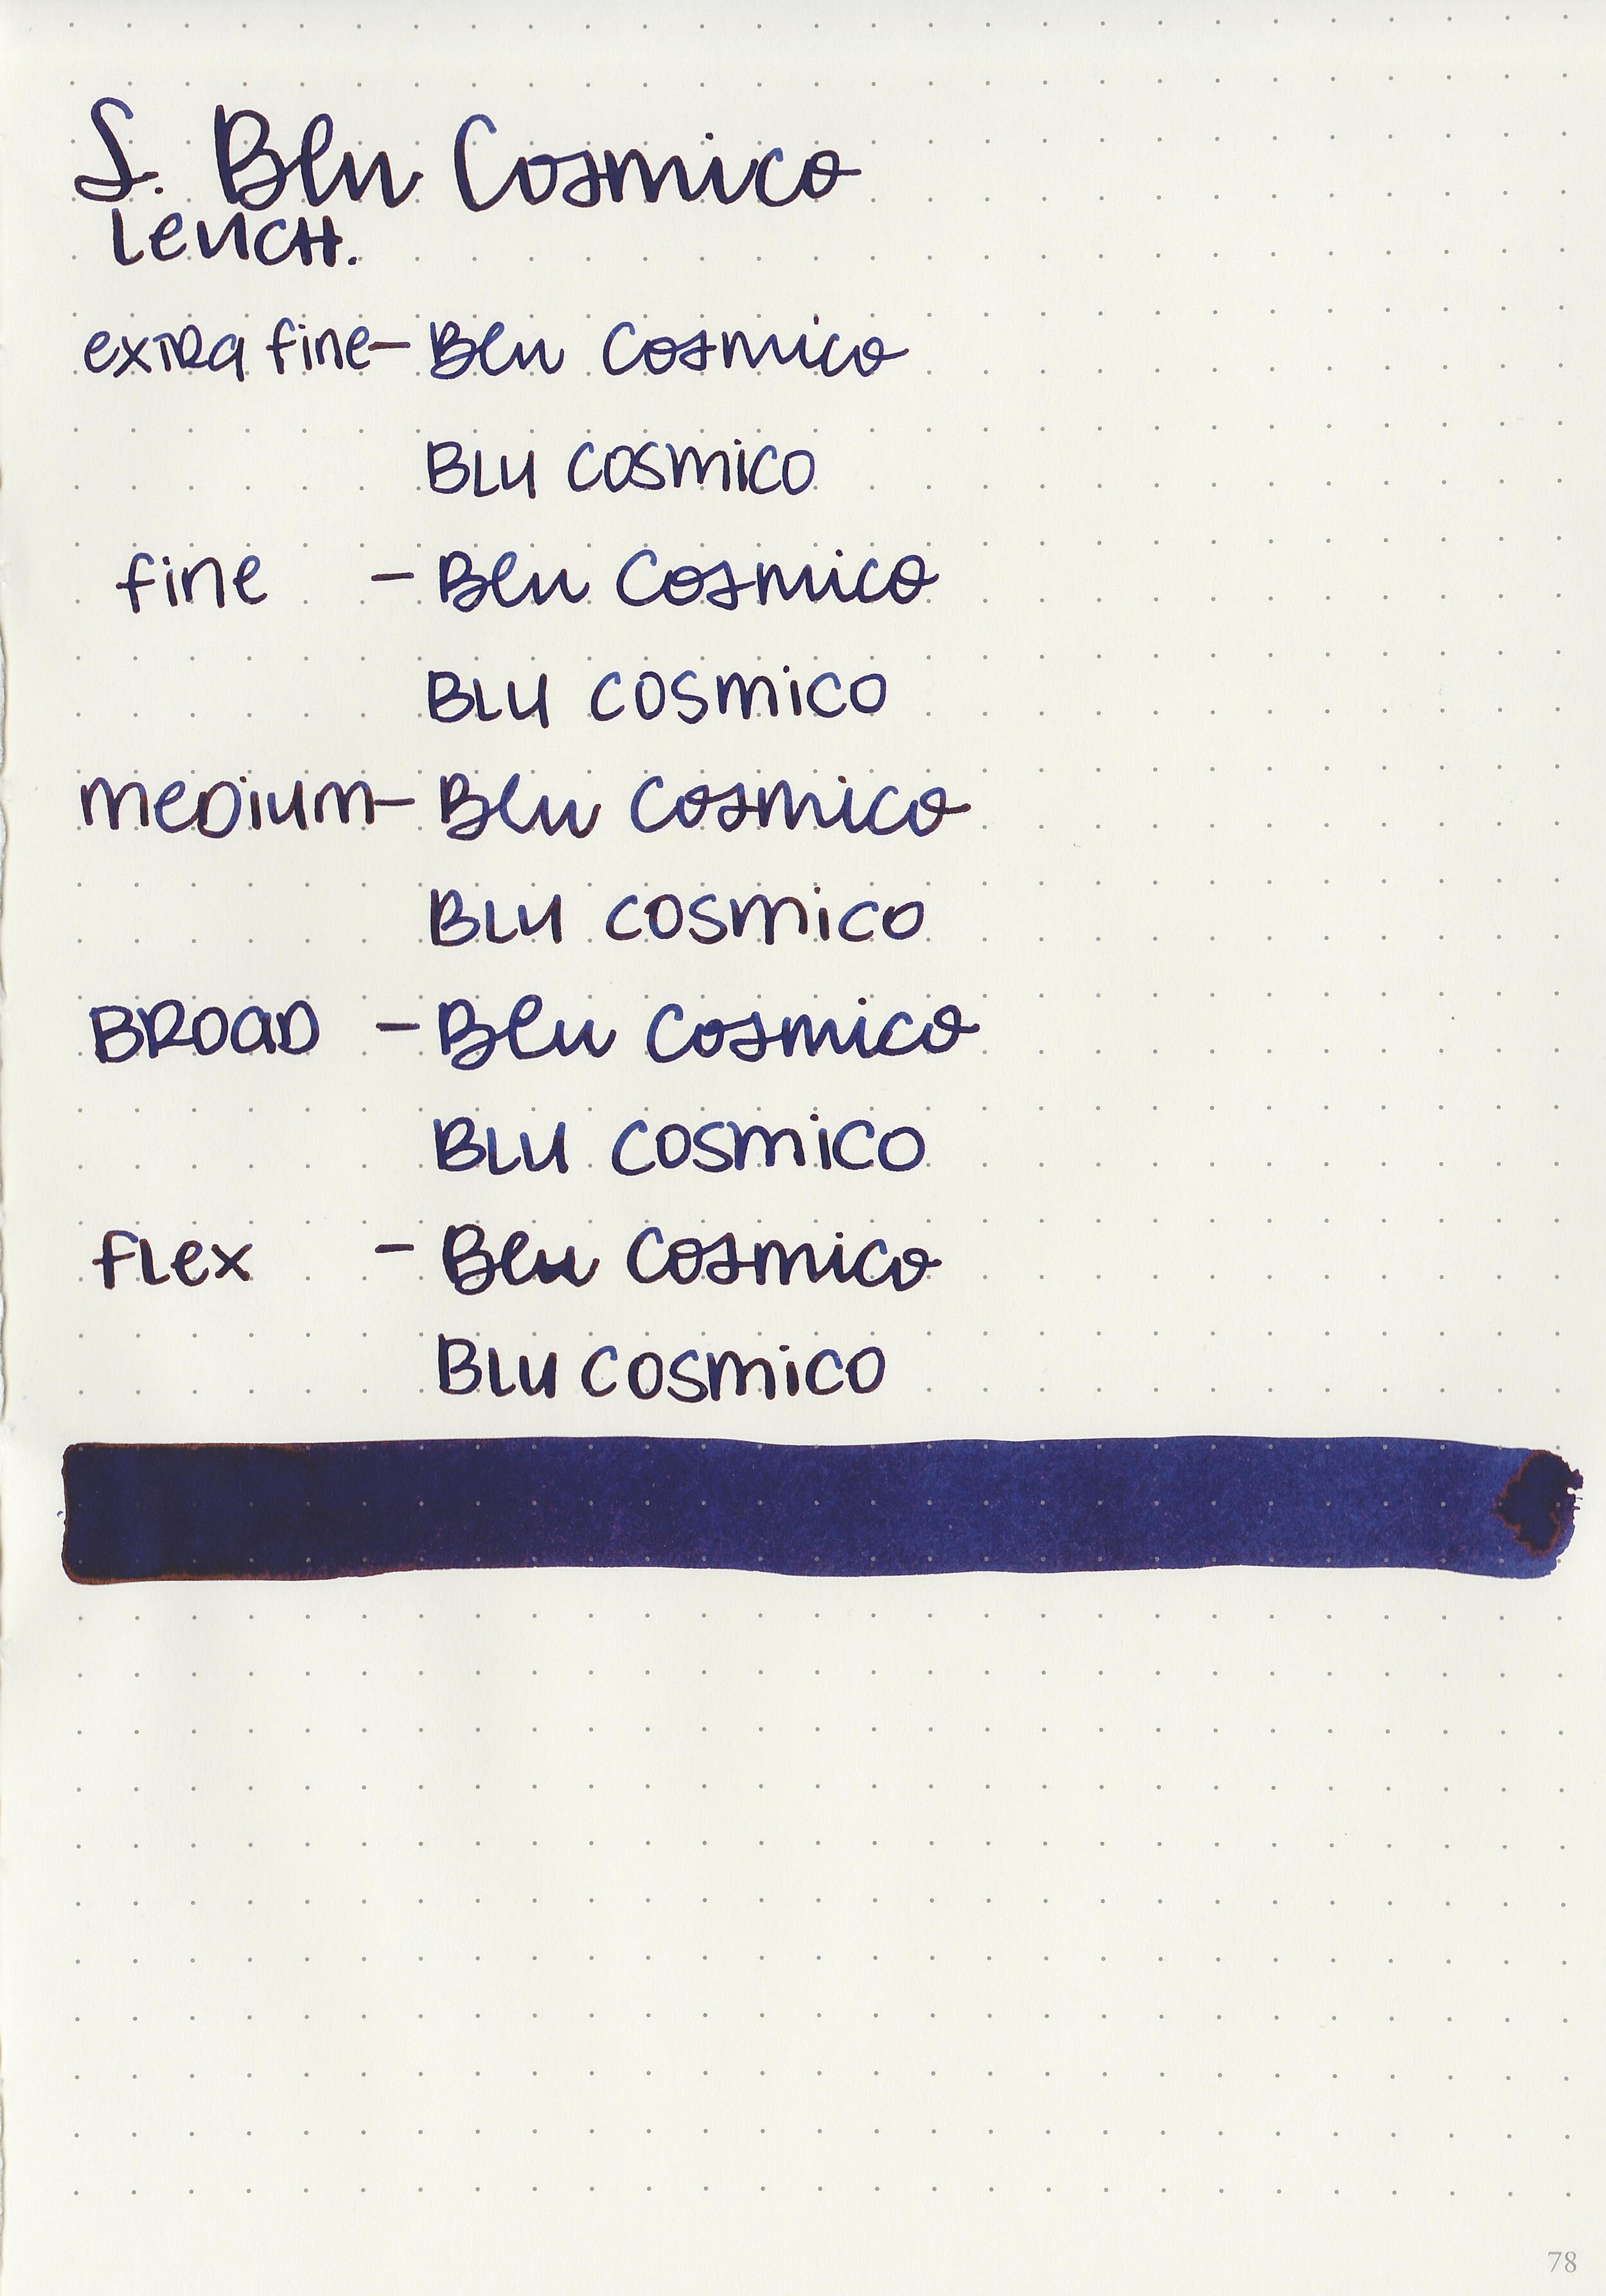 S. Blu Cosmico
Leuch.
extra fine - Blu Cosmico
Blu Cosmico
fine - Blu Cosmico
Blu Cosmico
medium - Blu Cosmico
Blu Cosmico
Broad - Blu Cosmico
Blu Cosmico
flex - Blu Cosmico
Blu Cosmico
78